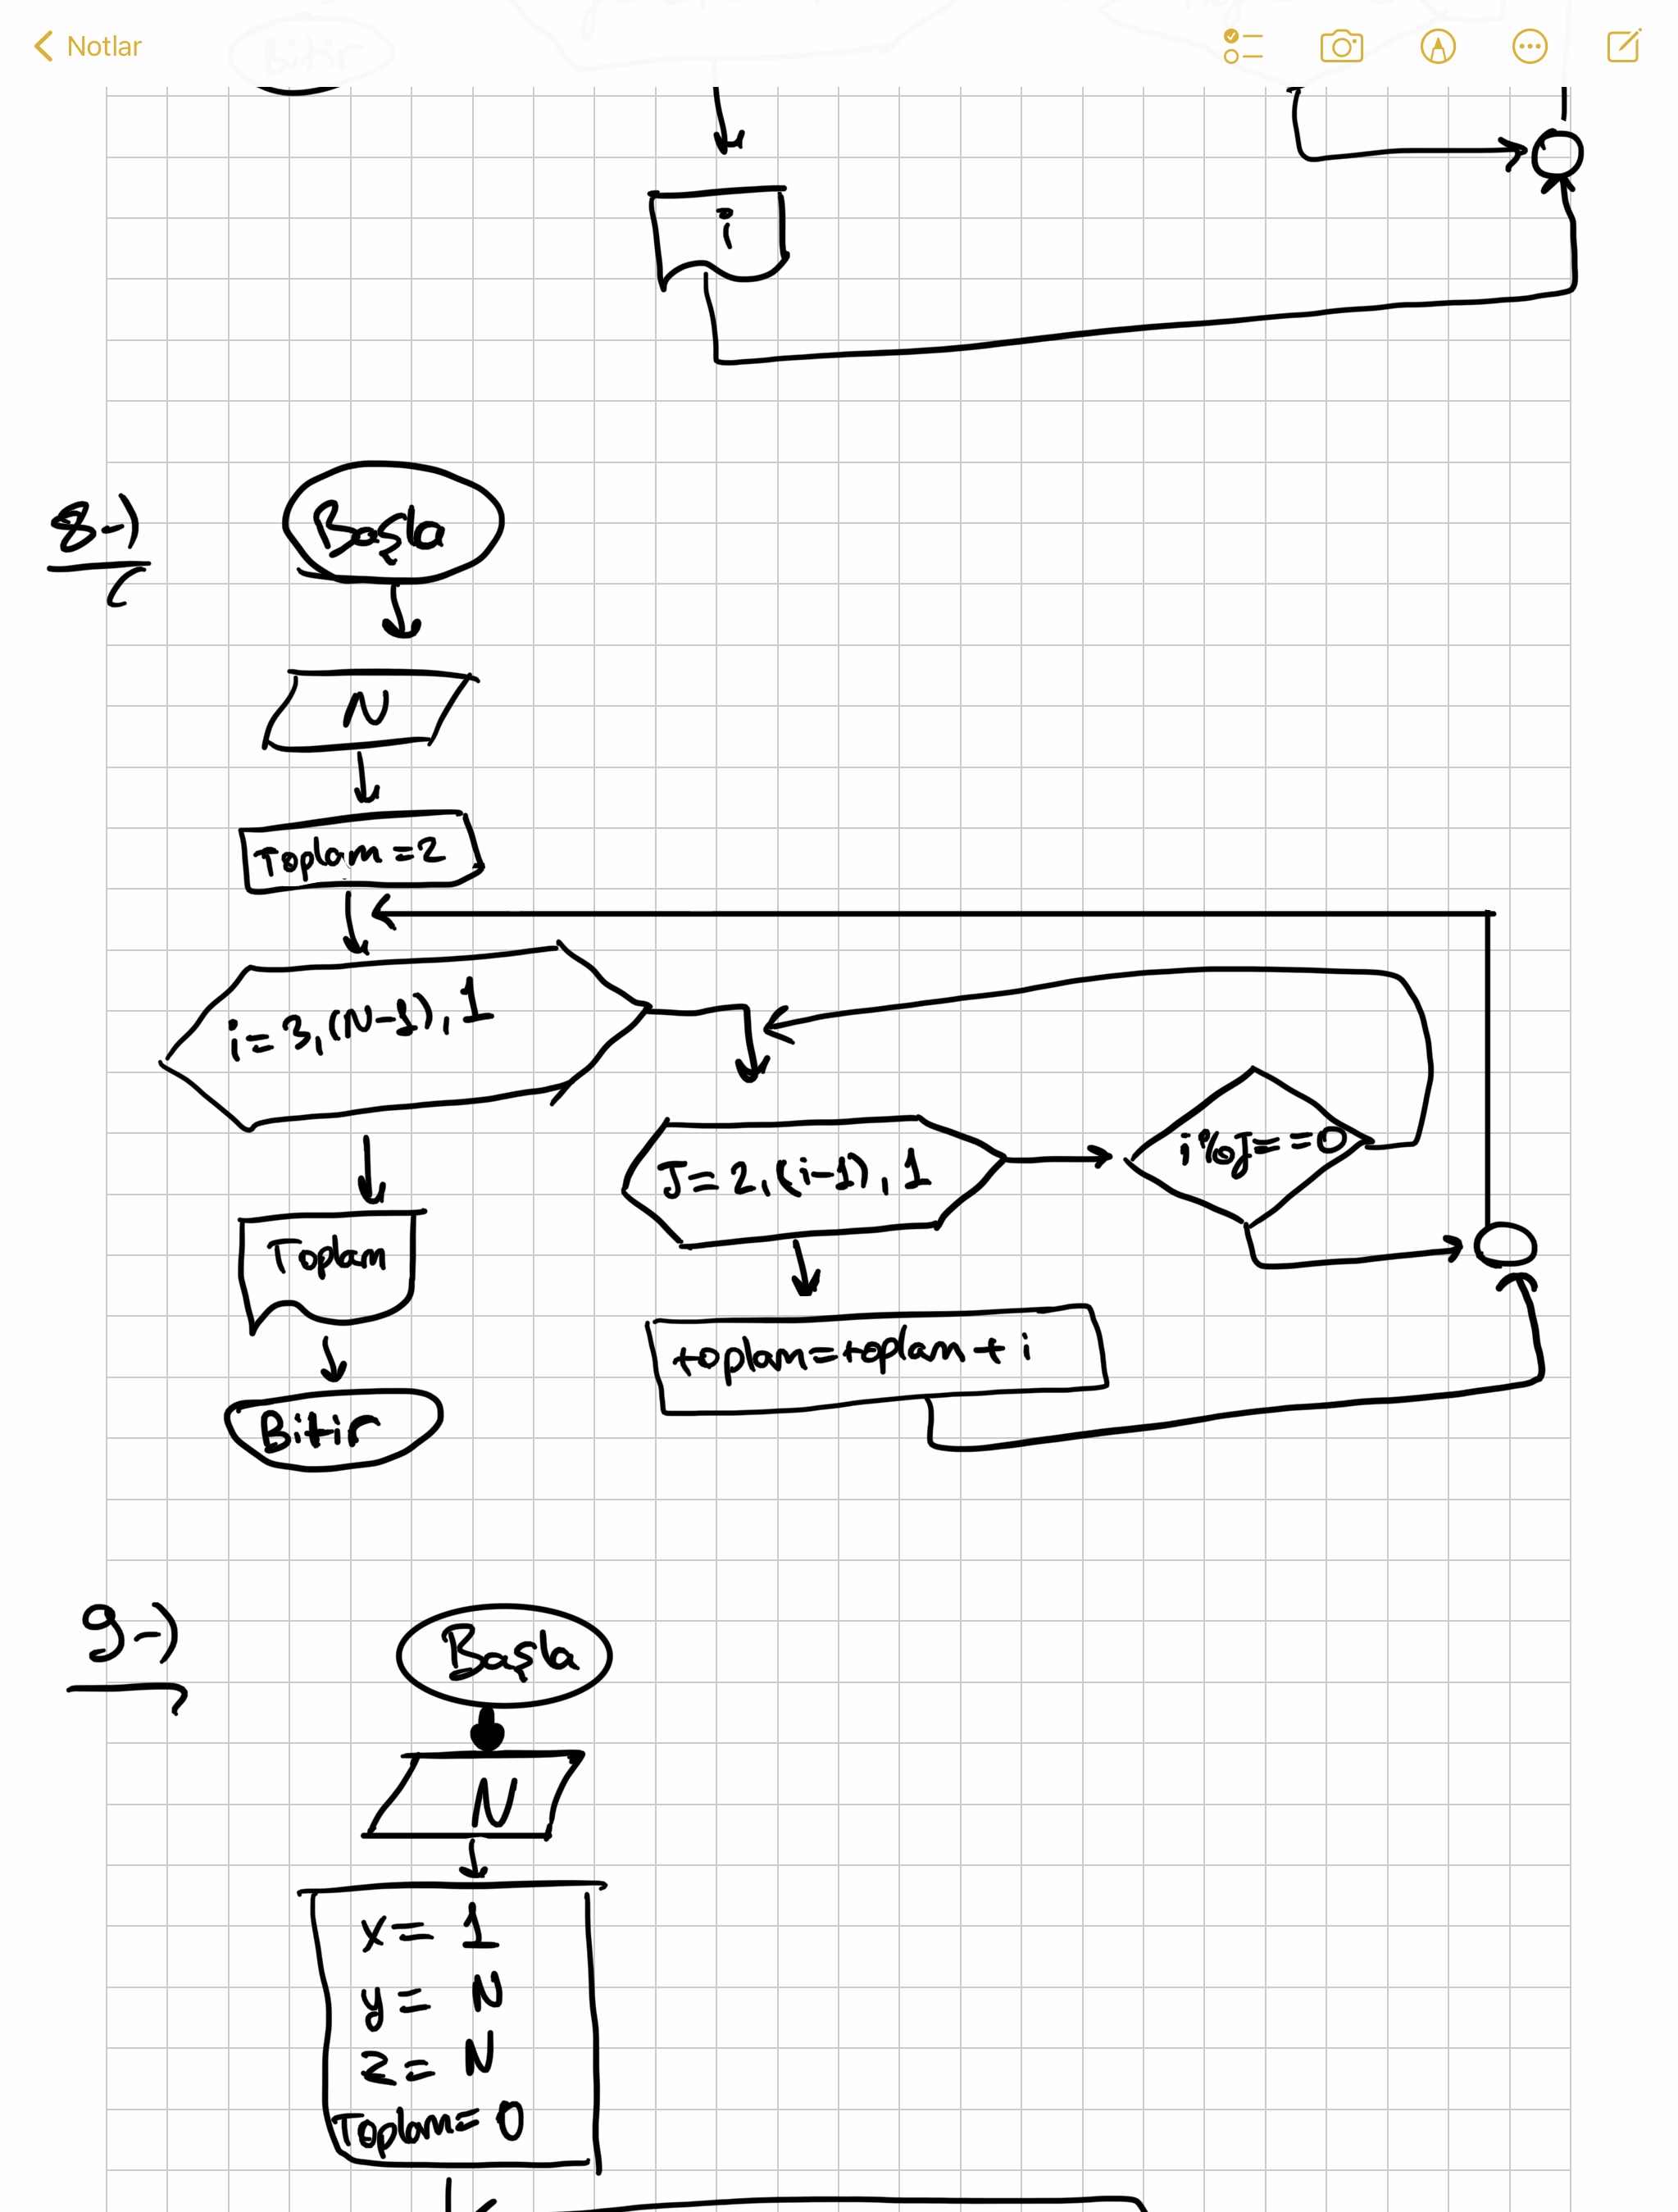 Notlar
i
8-)
Başla
N
Toplam = 2
i = 3, (N-1), 1
J = 2, (i-1), 1
i % J = = 0
Toplam
toplam = toplam + i
Bitir
9-)
Başla
N
x = 1
y = N
z = N
Toplam = 0